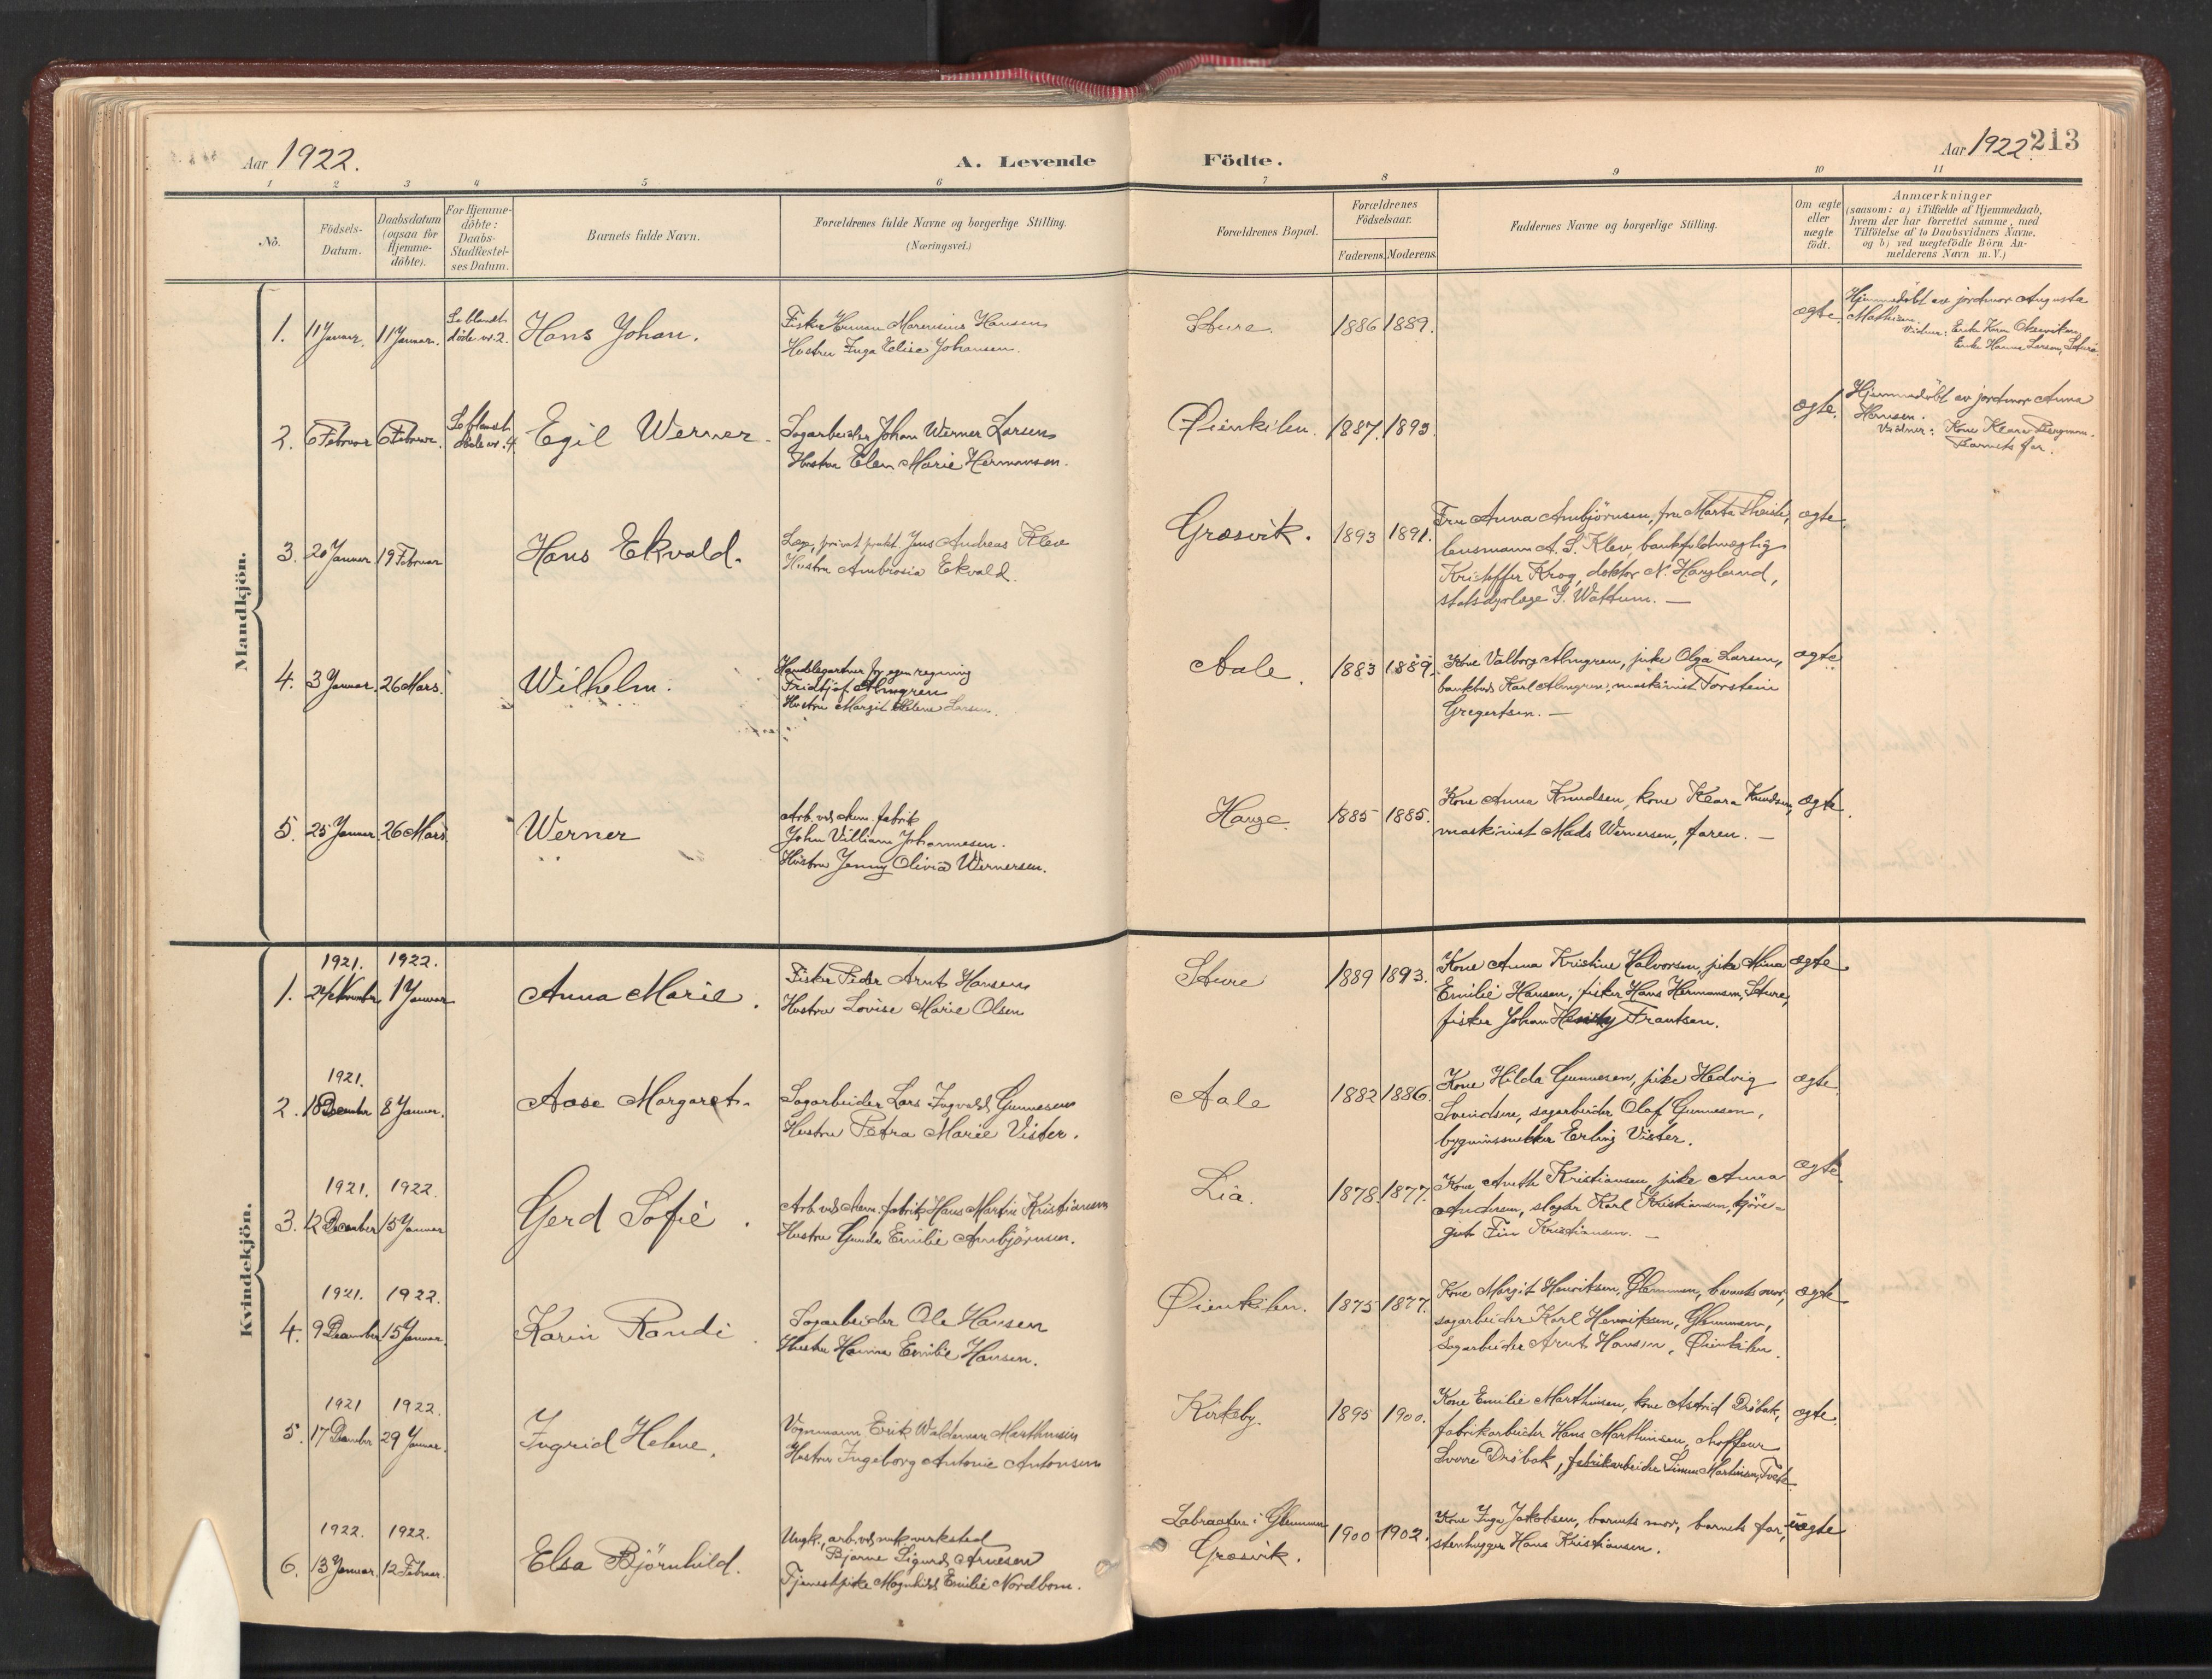 Aar 1922.
A. Levende
Födte.
Aar 1922.
213
1 2 3 4 5 6 7 8 9 10 11
No.
Födsels-
Datum.
Daabsdatum
(ogsaa for
Hjemme-
döbte).
For Hjemme-
döbte:
Daabs-
Stadfæstel-
ses Datum.
Barnets fulde Navn.
Forældrenes fulde Navne og borgerlige Stilling.
(Næringsvei.)
Forældrenes Bopæl.
Forældrenes
Födselsaar.
Faderens. Moderens.
Faddernes Navne og borgerlige Stilling.
Om ægte
eller
uægte
födt.
Anmærkninger
(saasom: a) i Tilfælde af Hjemmedaab,
hvem der har forrettet samme, med
Tilföielse af to Daabsvidners Navne.
og b) ved uægtefödte Börn An-
melderens Navn m.V.)
Mandkjön.
1. 11 Januar. 11 Januar. Se blandt
döde nr. 2. Hans Johan.
Fisker Herman Marensius Hansen
Hustru Inga Elise Johansen.
Hure 1886 1889. ægte.
Hjemmedöbt av jordmor Augusta
Mathisen.
Vidner: Enke Karen Oksviken,
Enke Hanna Larsen,
2. 6 Februar 6 Februar. Se blandt
döde nr. 4. Egil Werner.
Sagarbeider Johan Werner Larsen
Hustru Elen Marie Hermansen.
Øienkilen. 1887. 1893. ægte.
Hjemmedöbt av jordmor Anna
Hansen.
Vidner: Kone Klara Bergman.
Barnets far.
3. 20 Januar 19 Februar Hans Ekvald.
Læge, privat prakt. Jens Andreas Klev
Hustru Ambrosia Ekvald.
Græsvik. 1893 1891.
Fru Anna Arnbjörnsen, fru Marta Theiste,
lensmann A. S. Klev, bankfuldmægtig
Kristoffer Krog, doktor N. Hauglund,
statsdyrlæge J. Wattum. —
ægte
4. 3 Januar. 26 Mars. Wilhelm.
Handelsgartner for egen regning
Fridtjof Almgren
Hustru Margit Helene Larsen.
Aale. 1883 1889.
Kone Valborg Almgren, pike Olga Larsen,
bankbud Karl Almgren, maskinist Torstein
Gregertsen. —
ægte
5. 25 Januar 26 Mars Werner
Arb. ved kem. fabrik
John Villiam Johannesen.
Hustru Jenny Olivia Wernersen.
Hauge. 1885 1885.
Kone Anna Knudsen, kone Klara Knudsen,
maskinist Mads Wernersen, faren. —
ægte.
Kvindekjön.
1921. 1922.
1. 24 November 1 Januar Anna Marie.
Fisker Peder Arnt Hansen
Hustru Lovise Marie Olsen
Hure 1889 1893.
Kone Anna Kristine Halvorsen, pike Mina
Emilie Hansen, fisker Hans Hermansen, Hure,
fisker Johan Frantsen.
ægte
1921.
2. 18 December 8 Januar. Aase Margaret.
Sagarbeider Lars Ingvald Gunnesen
Hustru Petra Marie Vister.
Aale 1882 1886.
Kone Hilda Gunnesen, pike Hedvig
Svendsen, sagarbeider Olaf Gunnesen,
Erling Vister.
ægte
1921. 1922
3. 12 December 15 Januar Gerd Sofie.
Arb. ved kem. fabrik Hans Martin Kristiansen
Hustru Gunda Emilie Arnbjörnsen.
Lia. 1878 1877.
Kone Aneth Kristiansen, pike Anna
Andersen, slagter Karl Kristiansen, kjöre-
gut Fin Kristiansen. —
ægte
1921. 1922.
4. 9 December 15 Januar. Karin Randi.
Sagarbeider Ole Hansen
Hustru Hanna Emilie Hansen.
Øienkilen. 1875 1877.
Kone Margit Henriksen, Glemmen, barnets mor,
sagarbeider Karl Henriksen, Glemmen,
sagarbeider Arnt Hansen, Øienkilen.
ægte
1921 1922.
5. 17 December 29 Januar. Ingrid Helene.
Vognmann Erik Waldemar Marthinsen
Hustru Ingeborg Antonie Antonsen
Kirkeby. 1895 1900.
Kone Emilie Marthinsen, kone Astrid Dröbak,
fabrikarbeider Hans Marthinsen, chaffeur
Sverre Dröbak, fabrikarbeider Simen Martinsen,
ægte.
1922. 1922.
6. 13 Januar. 12 Februar. Elsa Björnhild.
Ungk., arb. ved mek. verksted
Bjarne Sigurd Arnesen
Tjenestpike Magnhild Emilie Nordbom.
Labraaten i Glemmen
Græsvik.
1900 1902.
Kone Inga Jakobsen, barnets mor, barnets far,
stenhugger Hans Kristiansen.
uægte